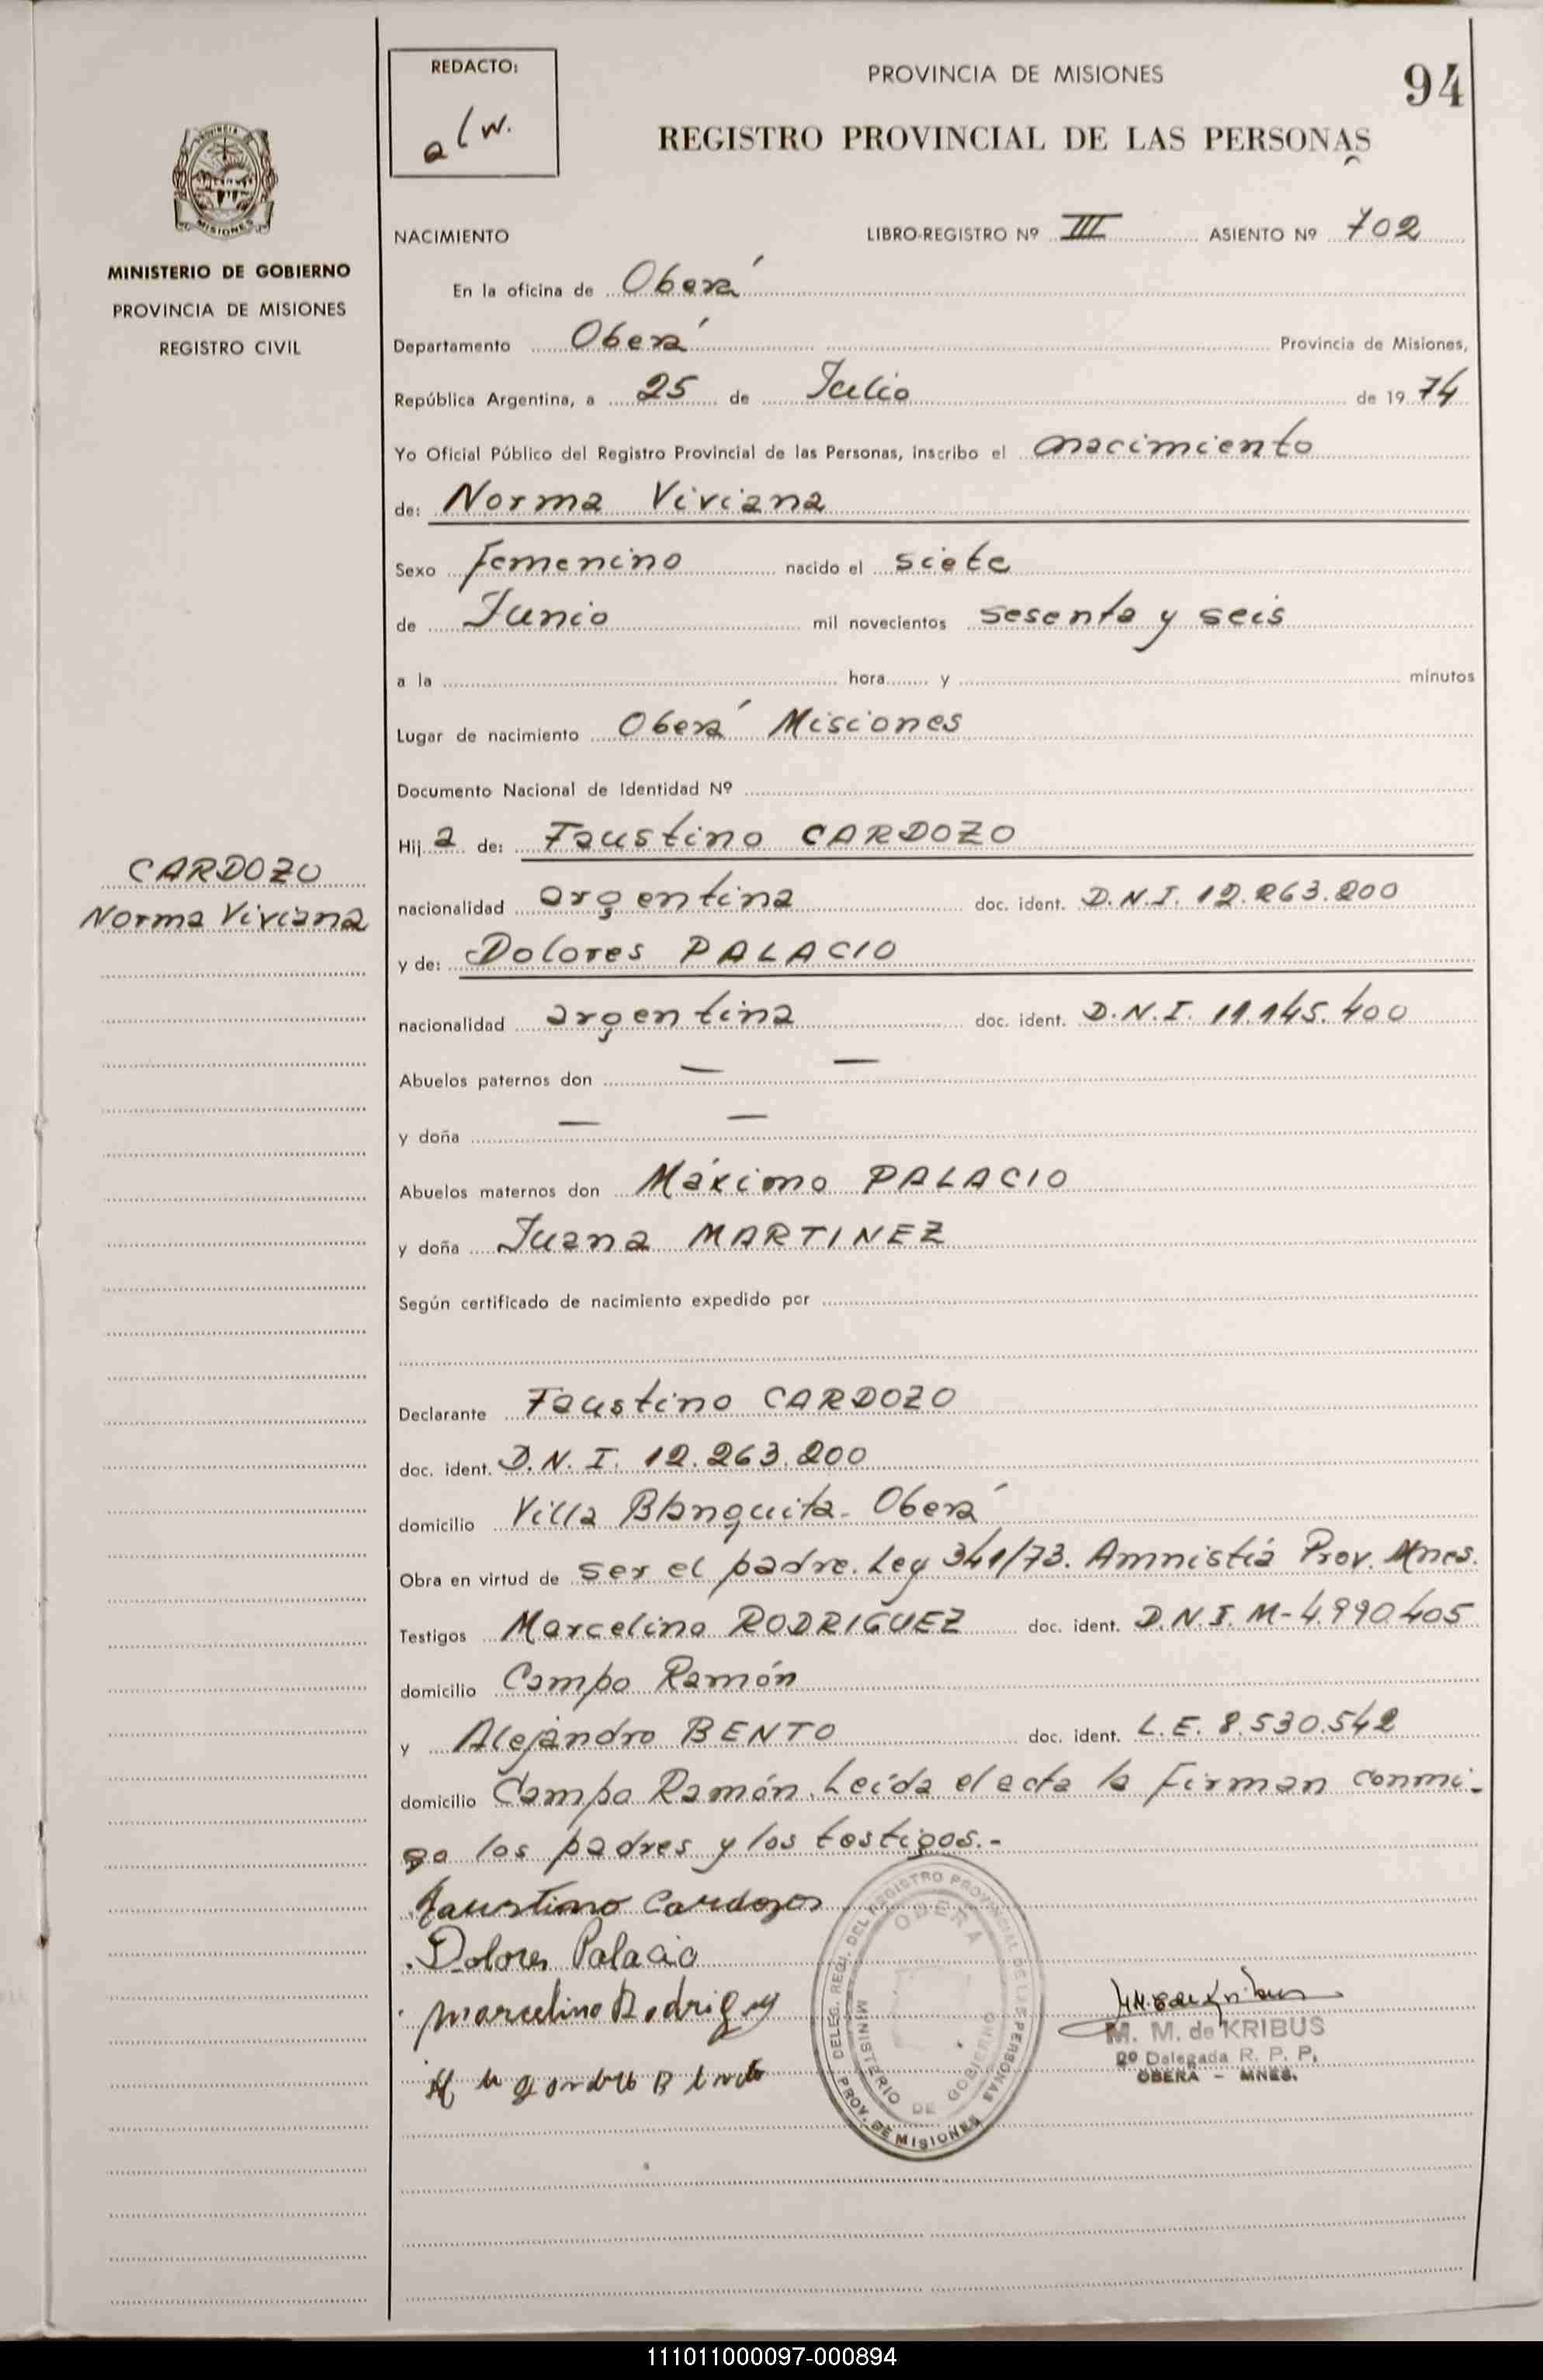 REDACTO:
alw.
PROVINCIA DE MISIONES
94
REGISTRO PROVINCIAL DE LAS PERSONAS
PROVINCIA DE
MISIONES
MINISTERIO DE GOBIERNO
PROVINCIA DE MISIONES
REGISTRO CIVIL
NACIMIENTO LIBRO-REGISTRO Nº III ASIENTO Nº 702
En la oficina de Oberá
Departamento Oberá Provincia de Misiones,
República Argentina, a 25 de Julio de 1974
Yo Oficial Público del Registro Provincial de las Personas, inscribo el nacimiento
de: Norma Viviana
Sexo femenino nacido el siete
de Junio mil novecientos sesenta y seis
a la hora y minutos
Lugar de nacimiento Oberá Misiones
Documento Nacional de Identidad Nº
Hija de: Faustino CARDOZO
CARDOZO
Norma Viviana
nacionalidad argentina doc. ident. D.N.I. 12.263.200
y de: Dolores PALACIO
nacionalidad argentina doc. ident. D.N.I. 11.145.400
Abuelos paternos don — —
y doña — —
Abuelos maternos don Máximo PALACIO
y doña Juana MARTINEZ
Según certificado de nacimiento expedido por
Declarante Faustino CARDOZO
doc. ident. D.N.I. 12.263.200
domicilio Villa Blanquita - Oberá
Obra en virtud de ser el padre. Ley 341/73. Amnistía Prov. Mnes.
Testigos Marcelino RODRIGUEZ doc. ident. D.N.I. M-4.990.405
domicilio Campo Ramón
y Alejandro BENTO doc. ident. L.E. 8.530.542
domicilio Campo Ramón. Leída el acta la firman conmi-
go los padres y los testigos.-
Faustino Cardozo
Dolores Palacio
Marcelino Rodriguez
DELEG. REGI. DEL REGISTRO PROVINCIAL DE LAS PERSONAS
OBERA
MINISTERIO DE GOBIERNO
PROV. DE MISIONES
M. M. de KRIBUS
2º Delegada R. P. P.
OBERA - MNES.
111011000097-000894